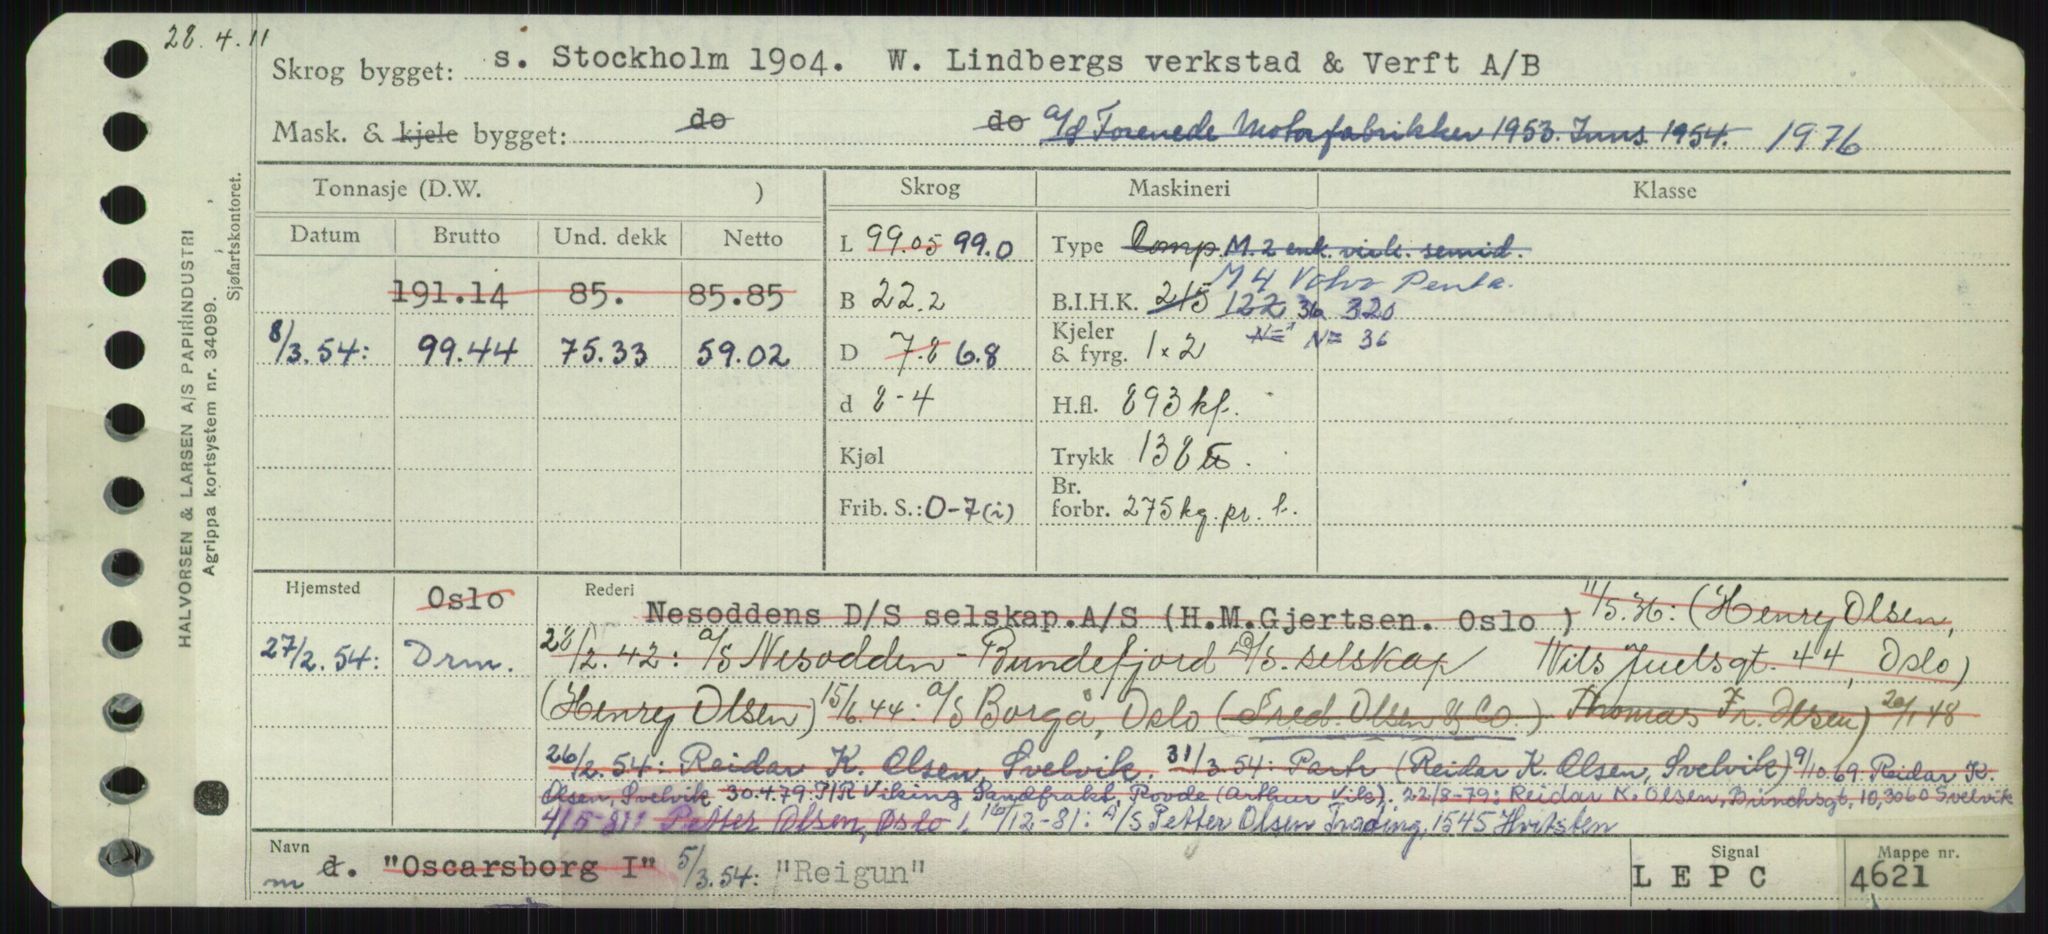 28.4.11
Skrog bygget: s. Stockholm 1904. W. Lindbergs verkstad & Verft A/B
Mask. & kjele bygget: do do a/s Forenede Motorfabrikker 1953. Inns. 1954. 1976
HALVORSEN & LARSEN A/S PAPIRINDUSTRI
Agrippa kortsystem nr. 34099.
Sjøfartskontoret.
Tonnasje (D.W. ) Skrog Maskineri Klasse
Datum Brutto Und. dekk Netto L 99.05 99.0 Type Comp. M. 2 enk. virk. semid.
M 4 Volvo Penta.
191.14 85. 85.85 B 22.2 B.I.H.K. 215 122 36 320
N= N= 36
8/3.54: 99.44 75.33 59.02 D 7.8 6.8 Kjeler & fyrg. 1x2
d 8-4 H.fl. 893 kf.
Kjøl Trykk 138 tb.
Frib. S.: 0-7(i) Br. forbr. 275 kg. pr. t.
Hjemsted Oslo Rederi Nesoddens D/S selskap.A/S (H.M.Gjertsen. Oslo ) 11/5.36: (Henry Olsen,
27/2.54: Drm. 28/2.42: A/S Nesodden-Bundefjord D/S. selskap Nils Juelsgt. 44, Oslo)
(Henry Olsen) 15/6.44: A/S Borgå, Oslo (Fred. Olsen & Co.) Thomas Fr. Olsen) 20/1 48
26/2.54: Reidar K. Olsen, Svelvik. 31/3.54: Partr (Reidar K. Olsen, Svelvik) 9/10.69. Reidar K.
Olsen, Svelvik 30.4.79: P/R Viking Sandfrakt, Rovde (Arthur Vik). 22/8-79: Reidar K. Olsen, Bunchsgt, 10, 3060 Svelvik
4/5-81: Petter Olsen, Oslo 1, 16/12-81: A/S Petter Olsen Trading, 1545 Hvitsten
Navn m d. "Oscarsborg I" 5/3.54: "Reigun" Signal LEPC Mappe nr. 4621